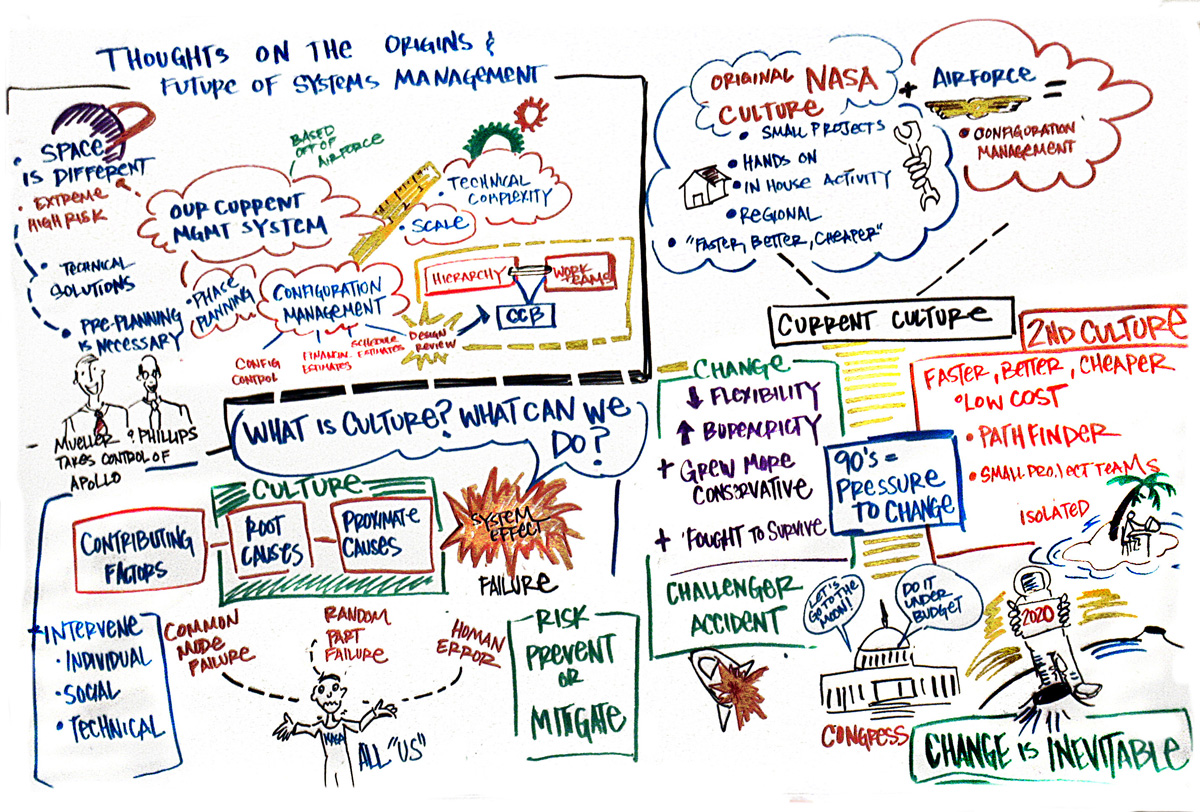 THOUGHTS ON THE ORIGINS &
FUTURE OF SYSTEMS MANAGEMENT
• SPACE
IS DIFFERENT
• EXTREME
HIGH RISK
• TECHNICAL
SOLUTIONS
• PRE-PLANNING
IS NECESSARY
BASED
OFF OF
AIRFORCE
OUR CURRENT
MGMT SYSTEM
• TECHNICAL
COMPLEXITY
• SCALE
• PHASE
PLANNING
CONFIGURATION
MANAGEMENT
CONFIG
CONTROL
FINANCIN.
ESTIMATES
SCHEDULE
ESTIMATES
DESIGN
REVIEW
HIERARCHY
WORK
TEAMS
CCB
MUELLER & PHILLIPS
TAKES CONTROL OF
APOLLO
WHAT IS CULTURE? WHAT CAN WE
DO?
CULTURE
CONTRIBUTING
FACTORS
ROOT
CAUSES
PROXIMATE
CAUSES
SYSTEM
EFFECT
FAILURE
INTERVENE
• INDIVIDUAL
• SOCIAL
• TECHNICAL
COMMON
MODE
FAILURE
RANDOM
PART
FAILURE
HUMAN
ERROR
NASA
ALL "US"
RISK
PREVENT
OR
MITIGATE
ORIGINAL NASA
CULTURE
• SMALL PROJECTS
• HANDS ON
• IN HOUSE ACTIVITY
• REGIONAL
• "FASTER, BETTER, CHEAPER"
+ AIRFORCE =
• CONFIGURATION
MANAGEMENT
CURRENT CULTURE
CHANGE
↓ FLEXIBILITY
↑ BUREACRICITY
+ GREW MORE
CONSERVATIVE
+ 'FOUGHT TO SURVIVE
CHALLENGER
ACCIDENT
90'S =
PRESSURE
TO CHANGE
2ND CULTURE
FASTER, BETTER, CHEAPER
• LOW COST
• PATHFINDER
• SMALL PROJECT TEAMS
ISOLATED
LET'S
GO TO THE
MOON!
DO IT
UNDER
BUDGET
CONGRESS
2020
CHANGE IS INEVITABLE